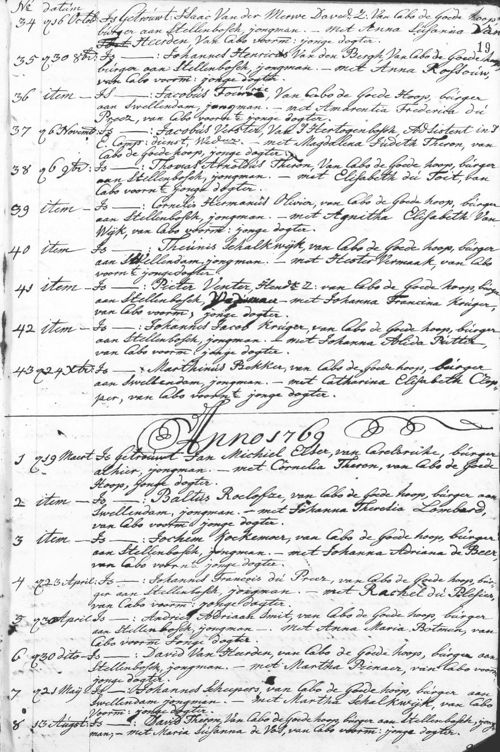 No datum
19
34 d 16 Octob. Is Getrouwt Isaac Van der Merwe Dav:d Z. Van Cabo de Goede hoop
burger aan Stellenbosch, jongman. - met Anna Susanna Van
Heerden, Van Cabo voorm: jonge dogter.
35 d 30 Is - : Johannes Henricus Van den Bergh, Van Cabo de Goede hoop,
burger aan Stellenbosch, jongman - met Anna Rossouw,
van Cabo voorm: jonge dogter.
36 item - Is - : Jacobus Van Cabo de Goede Hoop, burger
aan Swellendam, jongman. - met Amarentia Frederica du
Preez, van Cabo voornt jonge dogter.
37 d 6 Novemb. Is - : Jacobus Verster, Van S Hertogenbosch, Adsistent in S
E. Comp: dienst, Wed:r - met Magdalena Judith Theron, van
Cabo de Goede hoop, jonge dogter.
38 d 6 9br. Is - : Thomas Arnoldus Theron, Van Cabo de Goede hoop, burger
aan Stellenbosch, jongman. - met Elisabeth du Toit, van
Cabo voornt jonge dogter.
39 item - Is - : Cornelis Hermanus Olivier, van Cabo de Goede hoop, burger
aan Stellenbosch, jongman. - met Agnitha Elisabeth Van
Wijk, van Cabo voorm: jonge dogter.
40 item - Is - : Theunis Schalkwijk, van Cabo de Goede hoop, burger
aan Swellendam, jongman. - met Hester Vermaak, van Cabo
voornt jonge dogter.
41 item - Is - : Pieter Venter, Hend:k Z: van Cabo de Goede hoop, burger
aan Stellenbosch, - met Johanna Francina Kruger
van Cabo voorm; jonge dogter.
42 item - Is - : Johannes Jacob Kruger, van Cabo de Goede hoop, burger
aan Stellenbosch, jongman. - met Johanna Alida
van Cabo vorm: jonge dogter.
43 d 24 Xbr. Is - : Marthinus Bekker, van Cabo de Goede hoop, burger
aan Swellendam, jongman. - met Catharina Elisabeth Clop-
per, van Cabo voornt jonge dogter.
Anno 1769
1 d 19 Maert Is Getrouwt Jan Michiel Elser, van Carelsruhe, burger
alhier, jongman. - met Cornelia Theron, van Cabo de Goede
Hoop, jonge dogter.
2 item - Is - : Baltus Roelofze, van Cabo de Goede hoop, burger aan
Swellendam, jongman. - met Johanna Theresia Lombard,
van Cabo voorm: jonge dogter.
3 item - Is - : Jochem Koekemoer, van Cabo de Goede hoop, burger
aan Stellenbosch, jongman. - met Johanna Adriana de Beer
van Cabo voornt jonge dogter.
4 d 23 April Is - : Johannes Francois du Preez, van Cabo de Goede hoop, bur-
ger aan Stellenbosch, jongman. - met Rachel du Plessies,
van Cabo voorm jonge dogter.
5 d 30 April Is - : Andries Adriaan Smit, van Cabo de Goede hoop, burger
aan Stellenbosch, jongman. - met Anna Maria Botman, van
Cabo voorm: jonge dogter.
6 d 30 dito Is - : David Van Heerden, van Cabo de Goede hoop, burger aan
Stellenbosch, jongman. - met Martha Pienaer, van Cabo voorm
jonge dogter.
7 d 21 Maij Is - : Johannes Scheepers, van Cabo de Goede hoop, burger aan
Swellendam, jongman. - met Martha Schalkwijk, van Cabo
Voorm: jonge dogter.
8 13 Augst. Is - : David Theron, Van Cabo de Goede hoop, burger aan Stellenbosch, jong-
man; - met Maria Susanna de Vos, van Cabo voorm: jonge dogter.